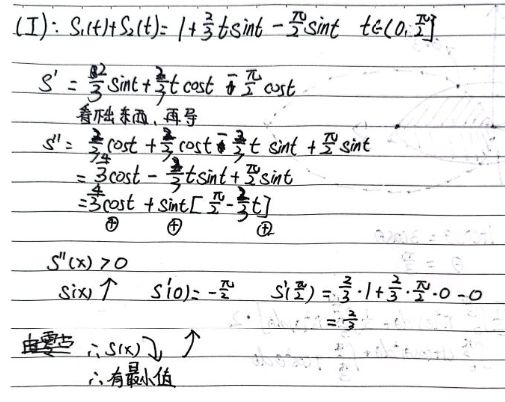 (I): S₁(t)+S₂(t)= 1+2/3 t sint - π/2 sint t∈(0,π/2]
S' = 2/3 sint + 2/3 t cost - π/2 cost
看不出东西,再导
S''= 2/3 cost + 2/3 cost - 2/3 t sint + π/2 sint
= 4/3 cost - 2/3 t sint + π/2 sint
= 4/3 cost + sint[π/2 - 2/3 t]
⊕ ⊕ ⊕
S''(x) >0
S'(x) ↑ S'(0)= -π/2 S'(π/2) = 2/3·1+2/3·π/2·0-0
= 2/3
∴S(x) ↘ ↑
∴有最小值